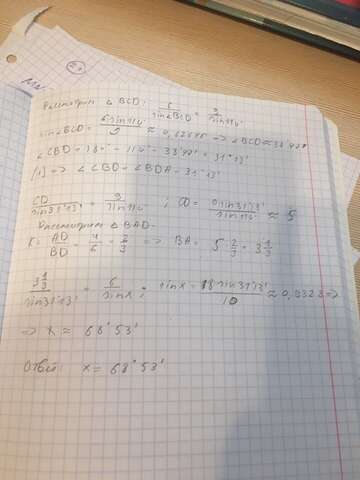 Рассмотрим △ BCD: 6/sin∠BCD = 9/sin114°
sin∠BCD = 6sin114°/9 ≈ => ∠BCD ≈
∠CBD = - 114° - = 31°13'
=> ∠CBD = ∠BDA = 31°13'
CD/sin31°13' = 9/sin114° ; CD = 9sin31°13'/sin114° ≈ 5
Рассмотрим △ BAD:
K = AD/BD = 4/6 = 2/3 => BA = 5 · 2/3 = 3 1/3
3 1/3/sin31°13' = 6/sinx ; sinx = 18sin31°13'/10 ≈ 0,9328 =>
=> x ≈ 68°53'
Ответ: x = 68°53'